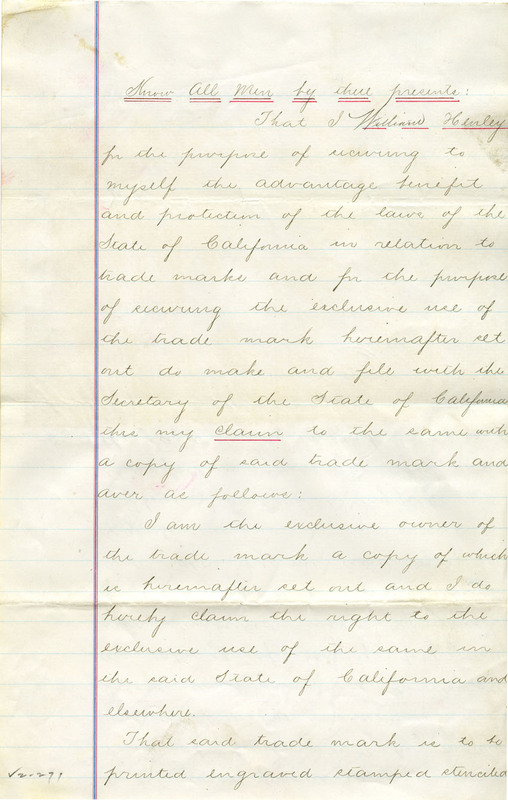 Know All Men by these presents:
That I William Henley
for the purpose of securing to
myself the advantage benefit
and protection of the laws of the
State of California in relation to
trade marks and for the purpose
of securing the exclusive use of
the trade mark hereinafter set
out do make and file with the
Secretary of the State of California
this my claim to the same with
a copy of said trade mark and
aver as follows:
I am the exclusive owner of
the trade mark a copy of which
is hereinafter set out and I do
hereby claim the right to the
exclusive use of the same in
the said State of California and
elsewhere.
That said trade mark is to be
√2-291 printed engraved stamped stenciled